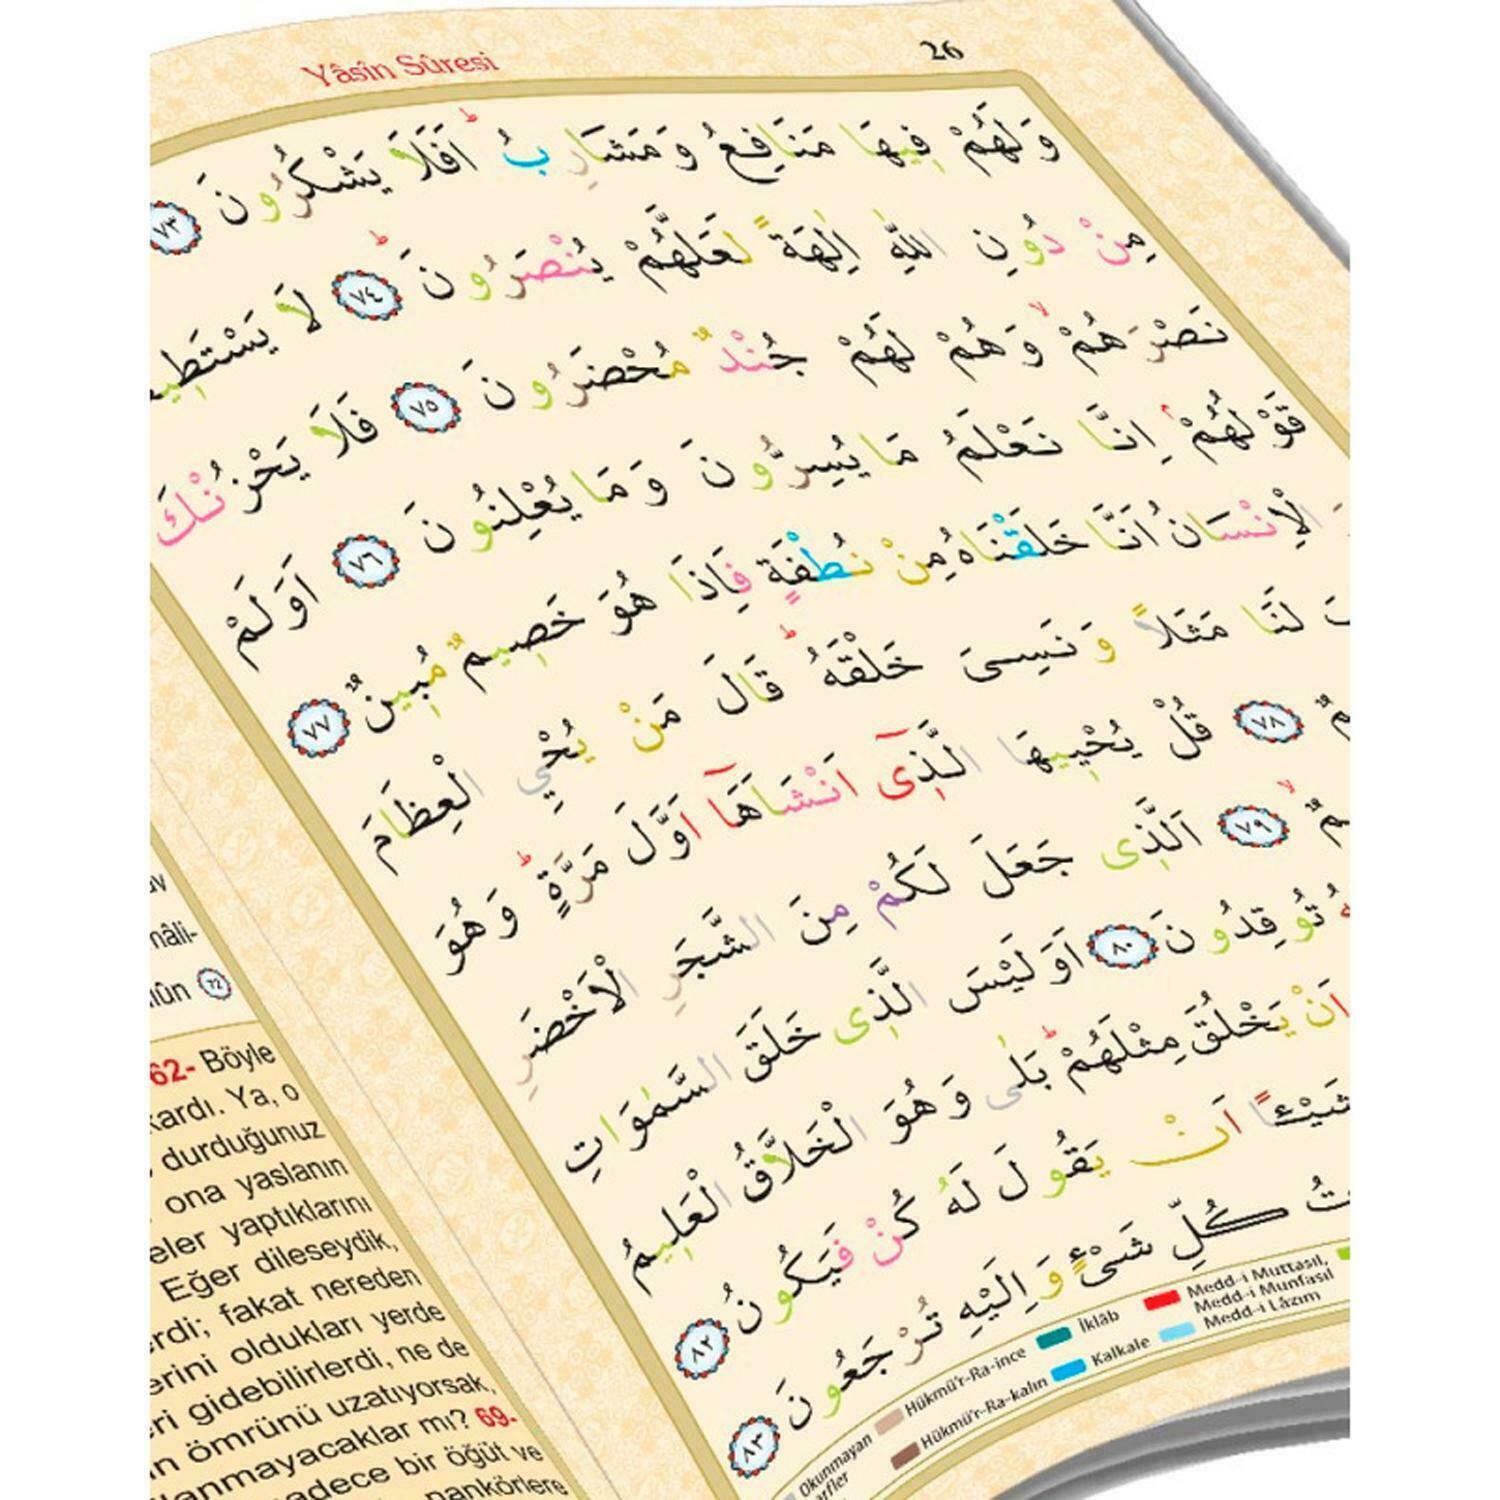 Yâsîn Sûresi
26
وَلَهُمْ فِيهَا مَنَافِعُ وَمَشَارِبُ ۜ اَفَلَا يَشْكُرُونَ ﴿٧٣﴾
مِنْ دُونِ اللّٰهِ اٰلِهَةً لَعَلَّهُمْ يُنْصَرُونَ ﴿٧٤﴾ لَا
نَصْرَهُمْ وَهُمْ لَهُمْ جُنْدٌ مُحْضَرُونَ ﴿٧٥﴾ فَلَا يَحْزُنْكَ
قَوْلُهُمْ اِنَّا نَعْلَمُ مَا يُسِرُّونَ وَمَا يُعْلِنُونَ ﴿٧٦﴾ اَوَلَمْ
الْاِنْسَانُ اَنَّا خَلَقْنَاهُ مِنْ نُطْفَةٍ فَاِذَا هُوَ خَصِيمٌ مُبِينٌ ﴿٧٧﴾
لَنَا مَثَلًا وَنَسِىَ خَلْقَهُ قَالَ مَنْ يُحْيِ الْعِظَامَ
﴿٧٨﴾ قُلْ يُحْيِيهَا الَّذِٓى اَنْشَاَهَٓا اَوَّلَ مَرَّةٍ وَهُوَ
﴿٧٩﴾ اَلَّذِى جَعَلَ لَكُمْ مِنَ الشَّجَرِ الْاَخْضَرِ
تُوقِدُونَ ﴿٨٠﴾ اَوَلَيْسَ الَّذِى خَلَقَ السَّمٰوَاتِ
اَنْ يَخْلُقَ مِثْلَهُمْ بَلٰى وَهُوَ الْخَلَّاقُ الْعَلِيمُ
شَيْـًٔا اَنْ يَقُولَ لَهُ كُنْ فَيَكُونُ ﴿٨٢﴾
كُلِّ شَىْءٍ وَاِلَيْهِ تُرْجَعُونَ ﴿٨٣﴾
Okunmayan
Hükmü'r-Ra-ince
Hükmü'r-Ra-kalın
İklâb
Kalkale
Medd-i Muttasıl,
Medd-i Munfasıl
Medd-i Lâzım
62- Böyle
Ya, o
durduğunuz
ona yaslanın
yaptıklarını
Eğer dileseydik,
fakat nereden
oldukları yerde
gidebilirlerdi, ne de
ömrünü uzatıyorsak,
mı? 69-
bir öğüt ve
nankörlere